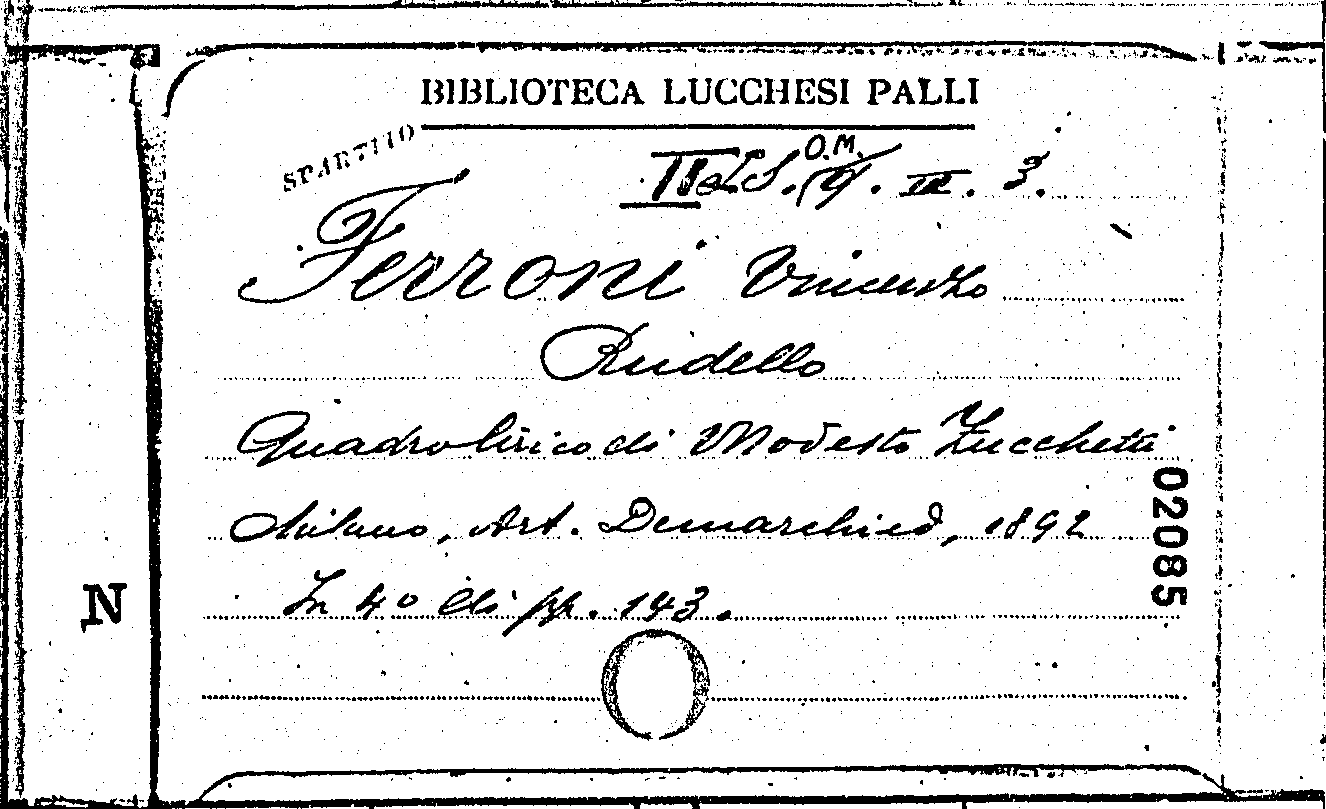 BIBLIOTECA LUCCHESI PALLI
SPARTITO
O.M.
IX. 3.
Ferroni Vincenzo
Rudello
Quadro lirico di Modesto Zucchetti
Milano, Art. Demarchi ed, 1892
In 4º di pp. 143.
02085
N